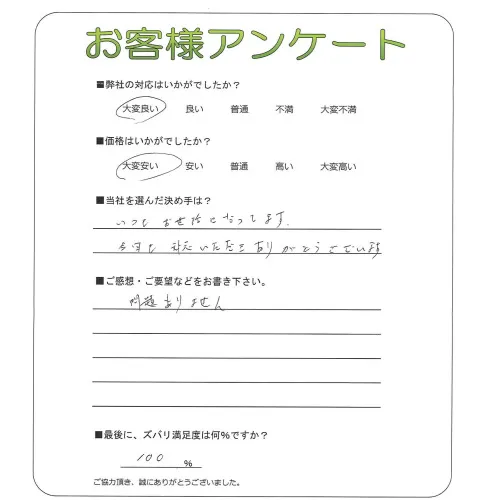 お客様アンケート
■弊社の対応はいかがでしたか？
大変良い 良い 普通 不満 大変不満
■価格はいかがでしたか？
大変安い 安い 普通 高い 大変高い
■当社を選んだ決め手は？
いつも お世話になってます.
今回も 対応いただき ありがとうございます
■ご感想・ご要望などをお書き下さい。
問題ありません
■最後に、ズバリ満足度は何%ですか？
100 %
ご協力頂き、誠にありがとうございました。